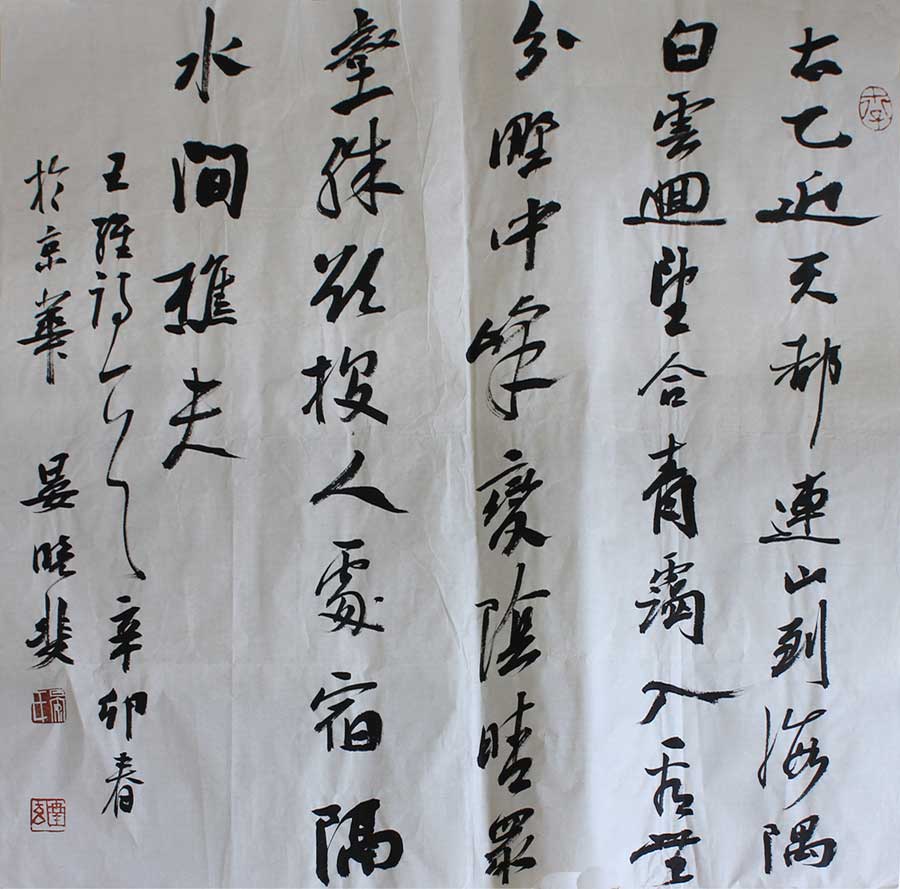 太乙近天都連山到海隅
白雲迴望合青靄入看無
分野中峰變陰晴眾
壑殊欲投人處宿隔
水問樵夫
王維詩一首 辛卯春
於京華 晏斐